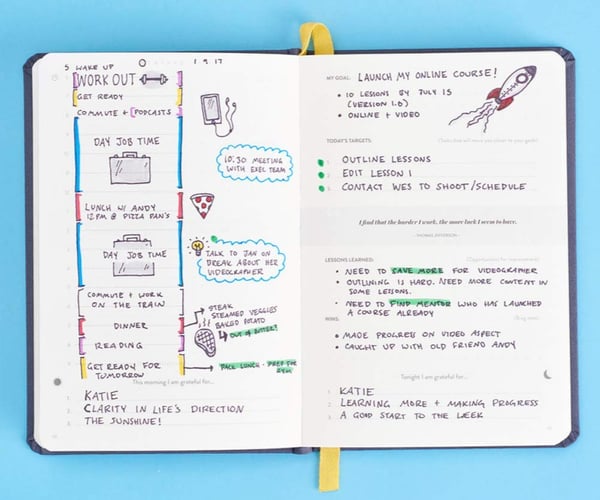 5 WAKE UP
1.9.17
WORK OUT
GET READY
COMMUTE + PODCASTS
DAY JOB TIME
10:30 MEETING
WITH EXEC TEAM
LUNCH W/ ANDY
12PM @ PIZZA DAN'S
DAY JOB TIME
TALK TO JAN ON
BREAK ABOUT HER
VIDEOGRAPHER
COMMUTE + WORK
ON THE TRAIN
STEAK
STEAMED VEGGIES
BAKED POTATO
OUT OF BUTTER!
DINNER
READING
GET READY FOR
TOMORROW
PACK LUNCH · PREP FOR
GYM
This morning I am grateful for...
KATIE
CLARITY IN LIFE'S DIRECTION
THE SUNSHINE!
MY GOAL: LAUNCH MY ONLINE COURSE!
• 10 LESSONS BY JULY 15
(VERSION 1.0)
• ONLINE + VIDEO
TODAY'S TARGETS:
(Tasks that will move you closer to your goals)
1 OUTLINE LESSONS
2 EDIT LESSON 1
3 CONTACT WES TO SHOOT/SCHEDULE
I find that the harder I work, the more luck I seem to have.
—THOMAS JEFFERSON
LESSONS LEARNED:
(Opportunities for improvement)
• NEED TO SAVE MORE FOR VIDEOGRAPHER
• OUTLINING IS HARD. NEED MORE CONTENT IN
SOME LESSONS.
• NEED TO FIND MENTOR WHO HAS LAUNCHED
A COURSE ALREADY
WINS:
• MADE PROGRESS ON VIDEO ASPECT
• CAUGHT UP WITH OLD FRIEND ANDY
Tonight I am grateful for...
1. KATIE
2. LEARNING MORE + MAKING PROGRESS
3. A GOOD START TO THE WEEK